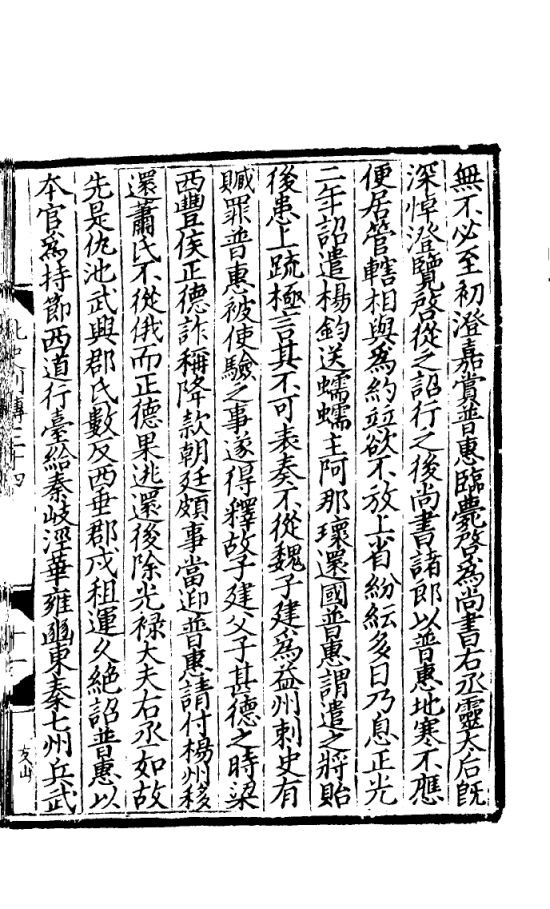 無不必至初澄嘉賞普惠臨薨啓爲尚書右丞靈太后旣
深悼澄覽啓從之詔行之後尚書諸郎以普惠地寒不應
便居管轄相與爲約竝欲不放上省紛紜多日乃息正光
二年詔遣楊鈞送蠕蠕主阿那瓌還國普惠謂遣之將貽
後患上疏極言其不可表奏不從魏子建爲益州刺史有
贓罪普惠被使驗之事遂得釋故子建父子甚德之時梁
西豐侯正德詐稱降款朝廷頗事當迎普惠請付楊州移
還蕭氏不從俄而正德果逃還後除光祿大夫右丞如故
先是仇池武興郡氐數反西垂郡戍租運久絶詔普惠以
本官爲持節西道行臺給秦岐涇華雍豳東秦七州兵武
北史列傳三十四
十一
友山